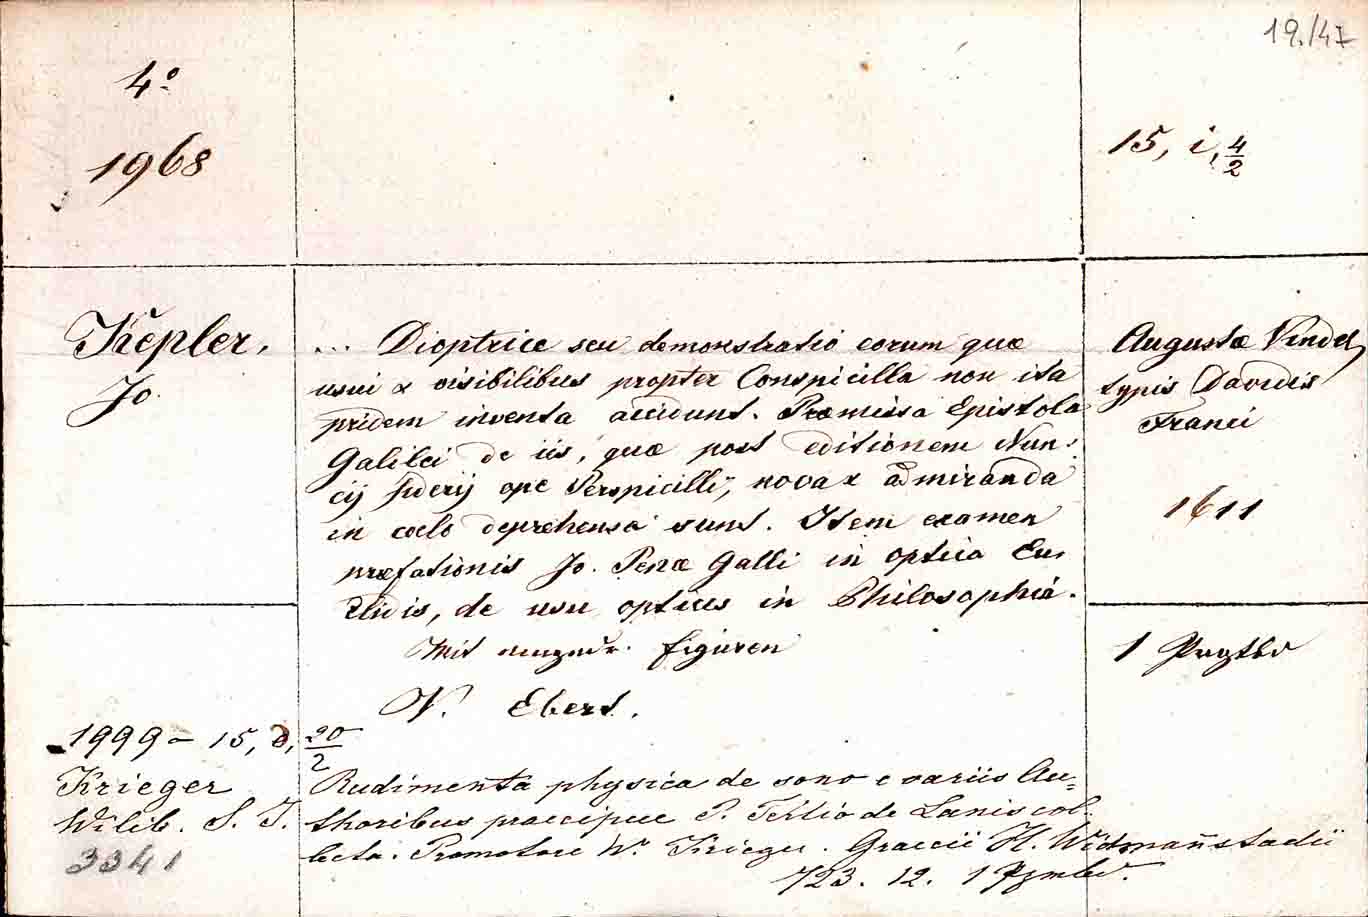 19./47
4º
1968
15, i, 4/2
Kepler,
Jo.
... Dioptrice seu demonstratio eorum quae
usui & visibilibus propter Conspicilla non ita
pridem inventa accidunt. Praemissa Epistola
Galilei de iis, quae post editionem Nun-
cij siderij ope Perspicilli, nova & admiranda
in coelo deprehensa sunt. Item examen
praefationis Jo. Penae Galli in optica Eu-
clidis, de usu optices in Philosophiá.
Mit figuren
V. Ebert.
Augustae Vindel,
typis Davidis
Franci
1611
1
1999 - 15, d, 20/2
Krieger
Wilib. S. J.
3341
Rudimenta physica de sono e variis Au-
thoribus praecipue P. Tertio de Lanis col-
lecta. Promotore W. Krieger. Graecii H. Widmanstadii
723. 12. 1